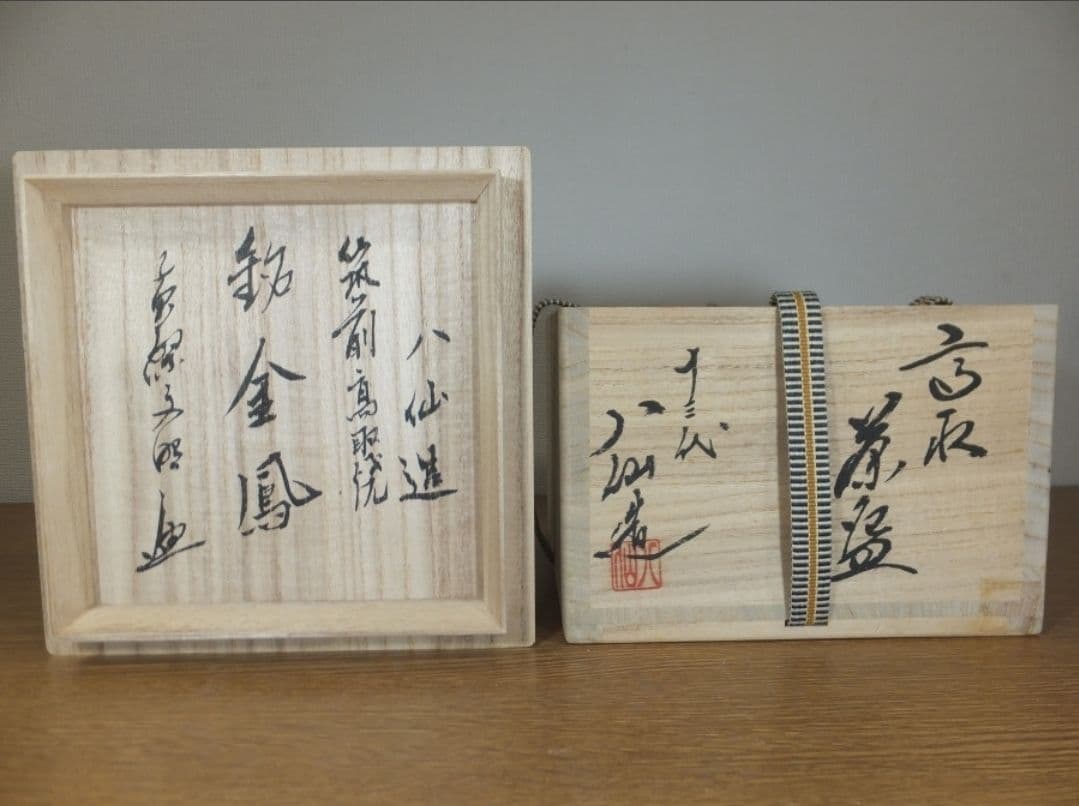 八仙造
筑前高取焼
銘金鳳
黄檗文明
高取
茶盌
十三代
八仙造
八仙